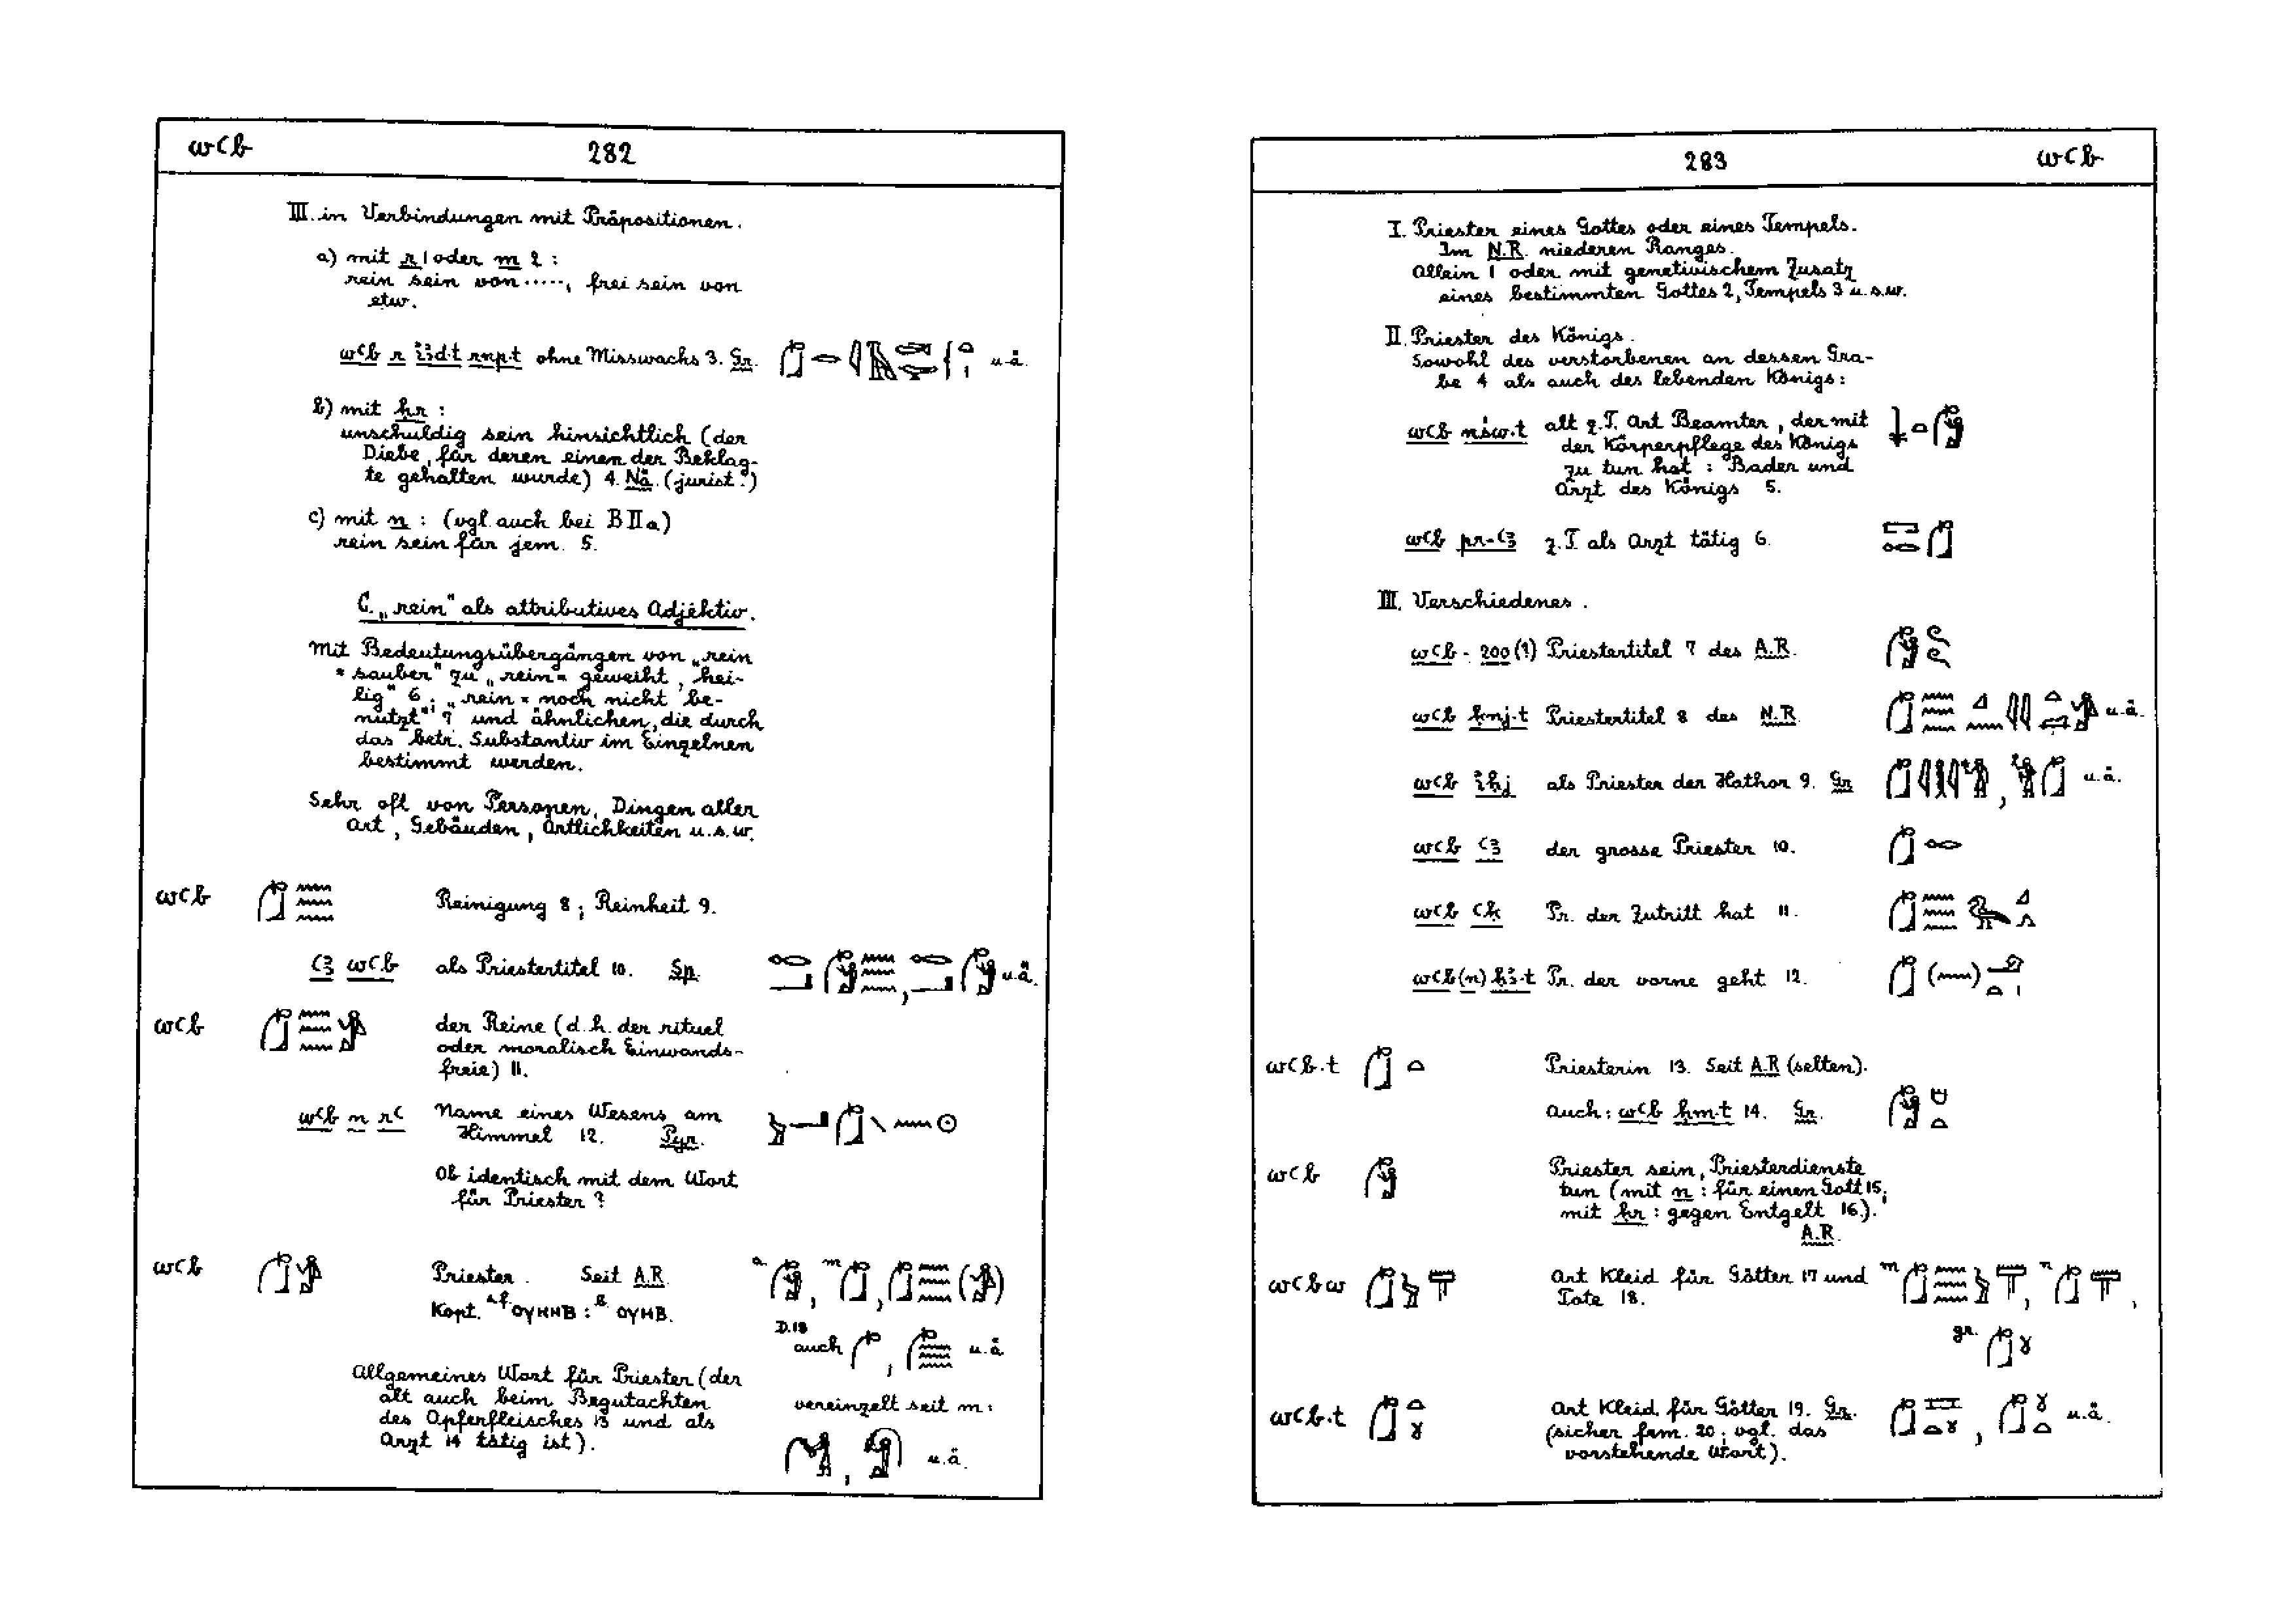 wꜥb 282
III. in Verbindungen mit Präpositionen.
a) mit r 1 oder m 2 :
rein sein von ....., frei sein von
etw.
wꜥb r i҆ꜣd·t rnp·t ohne Misswachs 3. Gr. u.ä.
b) mit ḥr :
unschuldig sein hinsichtlich (der
Diebe, für deren einen der Beklag-
te gehalten wurde) 4. Nä. (jurist.)
c) mit n : (vgl. auch bei B II a)
rein sein für jem. 5.
C. „rein" als attributives Adjektiv.
Mit Bedeutungsübergängen von „rein
= sauber" zu „rein = geweiht, hei-
lig" 6; „rein = noch nicht be-
nutzt" 7 und ähnlichen, die durch
das betr. Substantiv im Einzelnen
bestimmt werden.
Sehr oft von Personen, Dingen aller
Art, Gebäuden, Örtlichkeiten u.s.w.
wꜥb Reinigung 8; Reinheit 9.
ꜥꜣ wꜥb als Priestertitel 10. Sp. u.ä.
wꜥb der Reine (d.h. der rituel
oder moralisch Einwands-
freie) 11.
wꜥb n rꜥ Name eines Wesens am
Himmel 12. Pyr.
Ob identisch mit dem Wort
für Priester?
wꜥb Priester. Seit A.R. a. m
Kopt. ⲟⲩⲏⲏⲃ : B. ⲟⲩⲏⲃ.
D.18
auch u.ä
Allgemeines Wort für Priester (der
alt auch beim Begutachten
des Opferfleisches 13 und als
Arzt 14 tätig ist).
vereinzelt seit m:
u.ä.
283 wꜥb
I. Priester eines Gottes oder eines Tempels.
Im N.R. niederen Ranges.
Allein 1 oder mit genetivischem Zusatz
eines bestimmten Gottes 2, Tempels 3 u.s.w.
II. Priester des Königs.
Sowohl des verstorbenen an dessen Gra-
be 4 als auch des lebenden Königs:
wꜥb nśw·t alt z.T. Art Beamter, der mit
der Körperpflege des Königs
zu tun hat : Bader und
Arzt des Königs 5.
wꜥb pr-ꜥꜣ z.T. als Arzt tätig 6.
III. Verschiedenes.
wꜥb - 200 (?) Priestertitel 7 des A.R.
wꜥb ḳnj·t Priestertitel 8 des N.R. u.ä.
wꜥb i҆ḥj als Priester der Hathor 9. Gr. u.ä.
wꜥb ꜥꜣ der grosse Priester 10.
wꜥb ꜥḳ Pr. der Zutritt hat 11.
wꜥb (n) ḥꜣ·t Pr. der vorne geht 12.
wꜥb·t Priesterin 13. Seit A.R. (selten).
Auch : wꜥb ḥm·t 14. Gr.
wꜥb Priester sein, Priesterdienste
tun (mit n : für einen Gott 15;
mit ḥr : gegen Entgelt 16.).
A.R.
wꜥbw Art Kleid für Götter 17 und
Tote 18.
m n
gr.
wꜥb·t Art Kleid für Götter 19. Gr. u.ä.
(sicher fem. 20; vgl. das
vorstehende Wort).